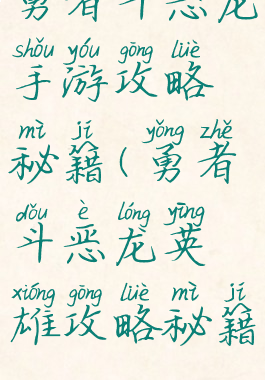 勇者斗恶龙
shǒu yóu gōng lüè
手游攻略
mì jí yǒng zhě
秘籍(勇者
dǒu è lóng yīng
斗恶龙英
xióng gōng lüè mì jí
雄攻略秘籍